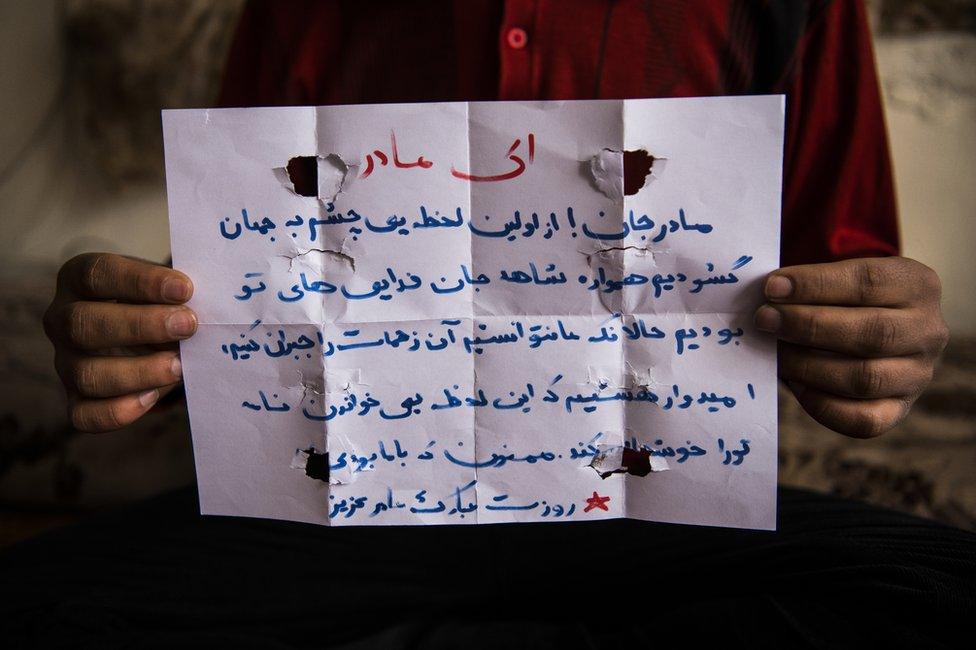 ای مادر
مادر جان! از اولین لحظه یی چشم به جهان
گشودیم همواره شاهد جان فدایی های تو
بودیم حالانکه ما نتوانستیم آن زحمات را جبران کنیم،
امیدوار هستیم که این لحظه یی خواندن نامه
تورا خوشحال کند. ممنون که بابا بودی
★ روزت مبارک مادر عزیز